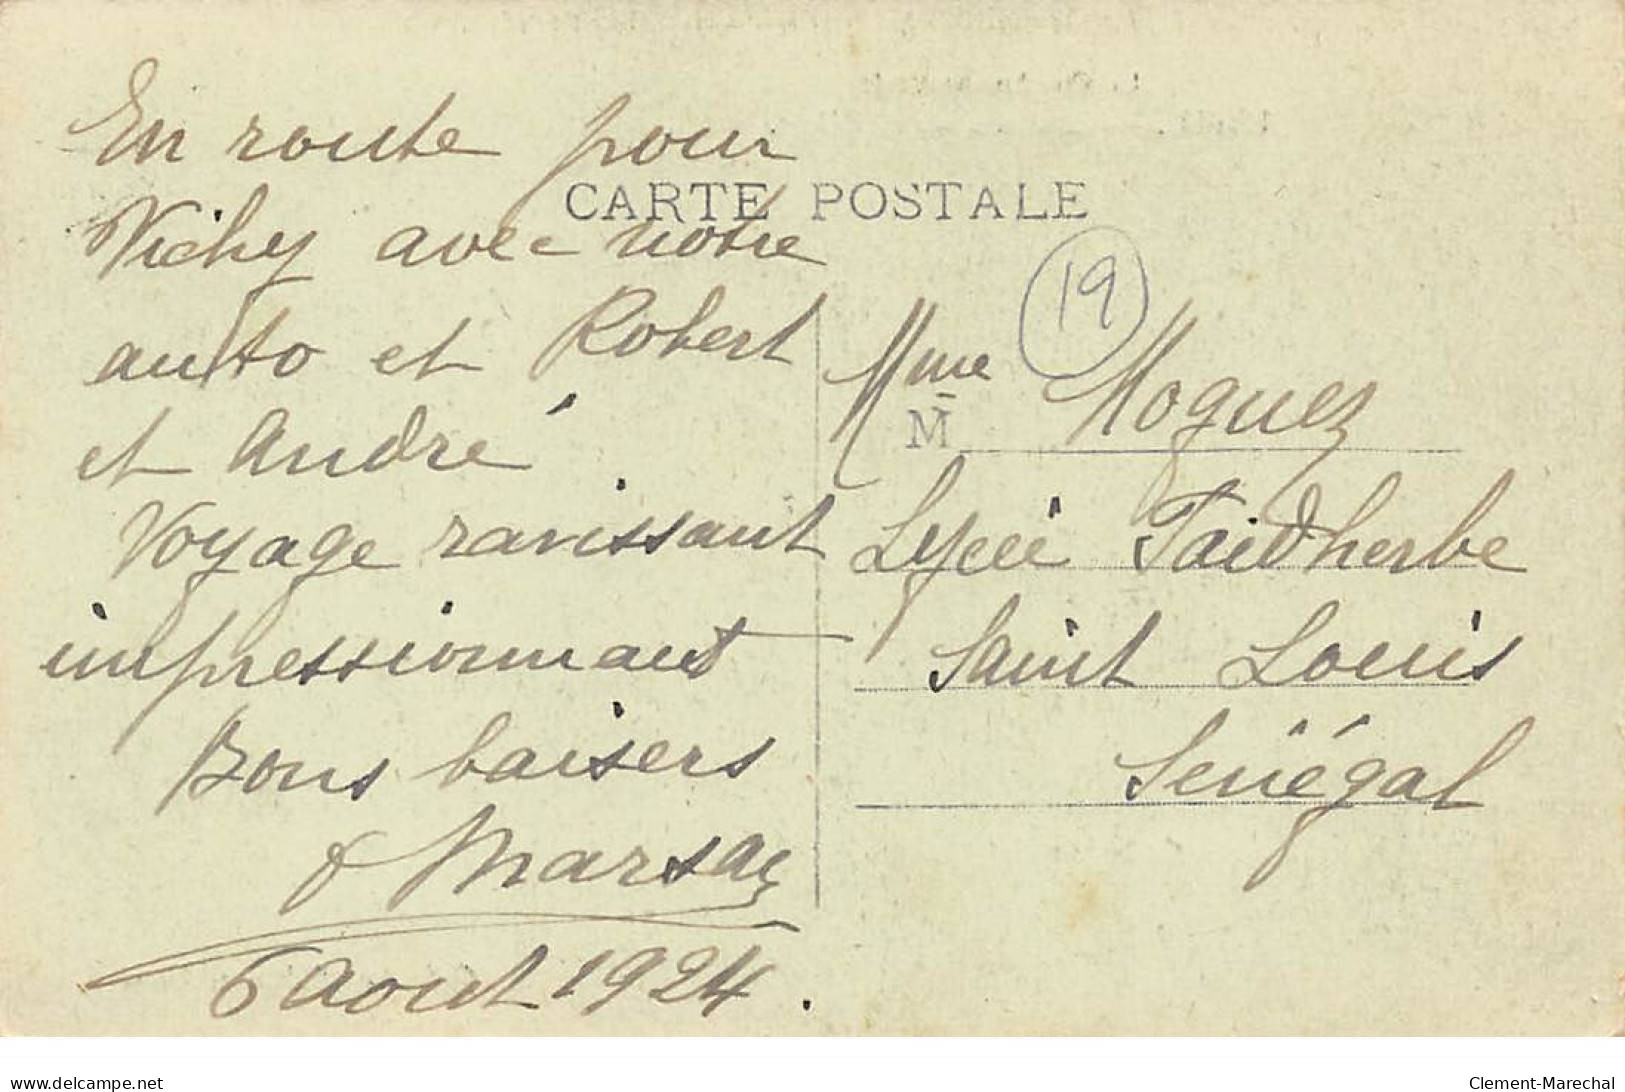 En route pour
Vichy avec notre
auto et Robert
et André
Voyage ravissant
impressionnant
Bons baisers
6 Aout 1924.
CARTE POSTALE
19
Mme Moguez
M
Lycée Faidherbe
Saint Louis
Sénégal
delcampe.net
Clement-Marechal